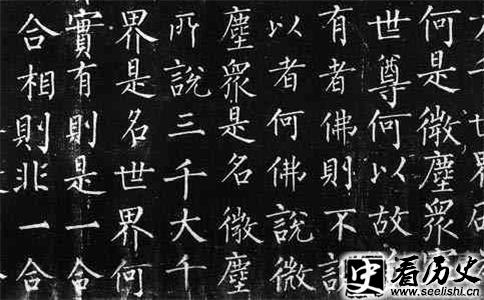 千世界
何是微塵衆
世尊何以故
有者佛則不
以者何佛說微
塵衆是名微塵
所說三千大千
界是名世界何
實有則是一合
合相則非一合
史 看历史
www.seelishi.cn